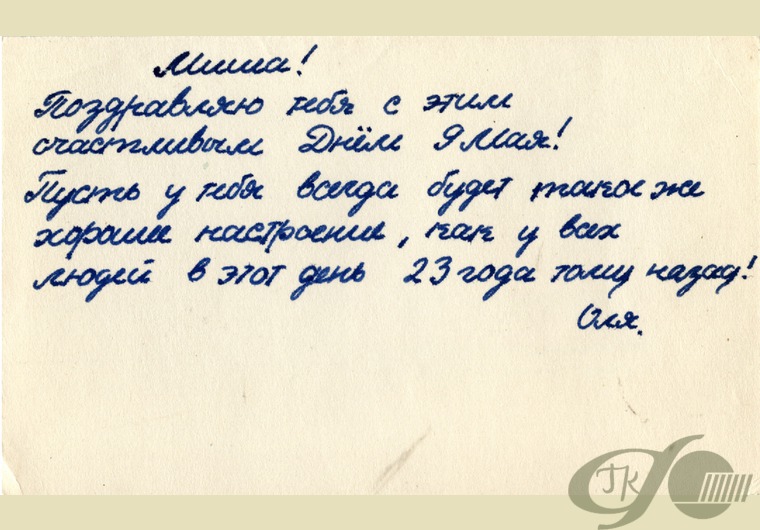 Миша!
Поздравляю тебя с этим
счастливым Днём 9 Мая!
Пусть у тебя всегда будет такое же
хорошее настроение, как у всех
людей в этот день 23 года тому назад!
Оля.
ПК